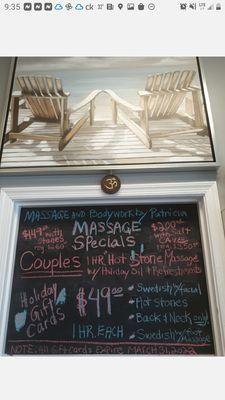 9:35
MASSAGE AND Bodywork by Patricia
MASSAGE
Specials
$149.00
with
stones
$200.00
with Salt
CAVES
Couples 1 HR. Hot Stone Massage
w/Holiday Oil & Refreshments
Holiday
Gift
Cards
$49.00
1 HR. EACH
• Swedish w/facial
• Hot Stones
• Back & Neck only
• Swedish w/foot
MASSAGE
NOTE: All Gift cards Expire MARCH 31, 2022